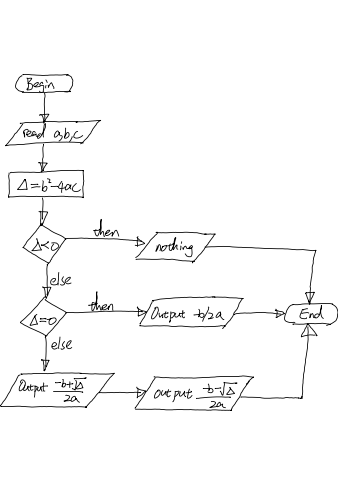 Begin
read a,b,c
Δ=b²-4ac
Δ<0
then
nothing
else
Δ=0
then
Output -b/2a
End
else
Output -b+√Δ/2a
output -b-√Δ/2a